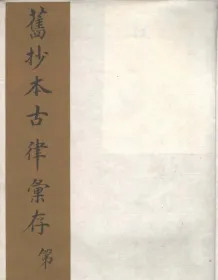 舊抄本古律彙存 第